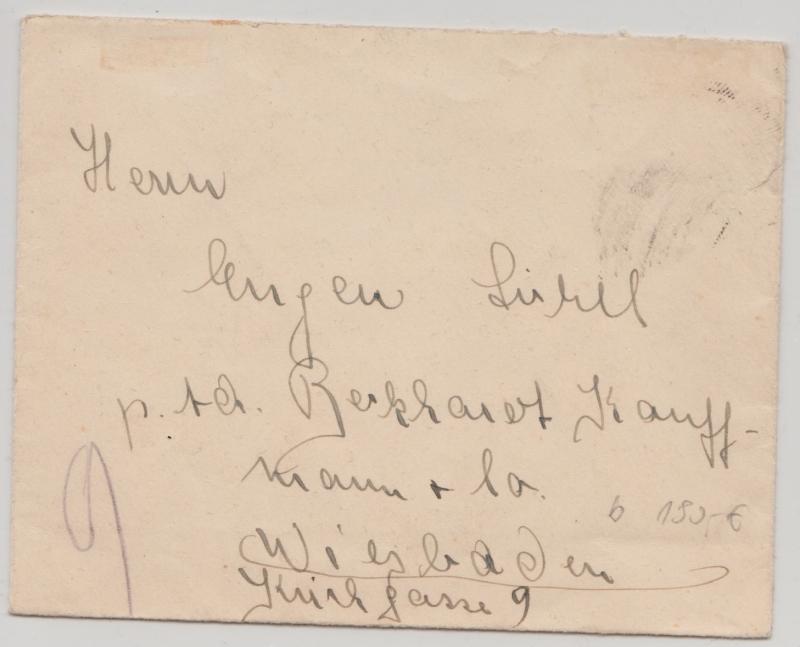 Herrn
Eugen
p. Ad. Berkhardt Kauff-
mann + Co.
Wiesbaden
Kirchgasse 9
9
b 150,- €